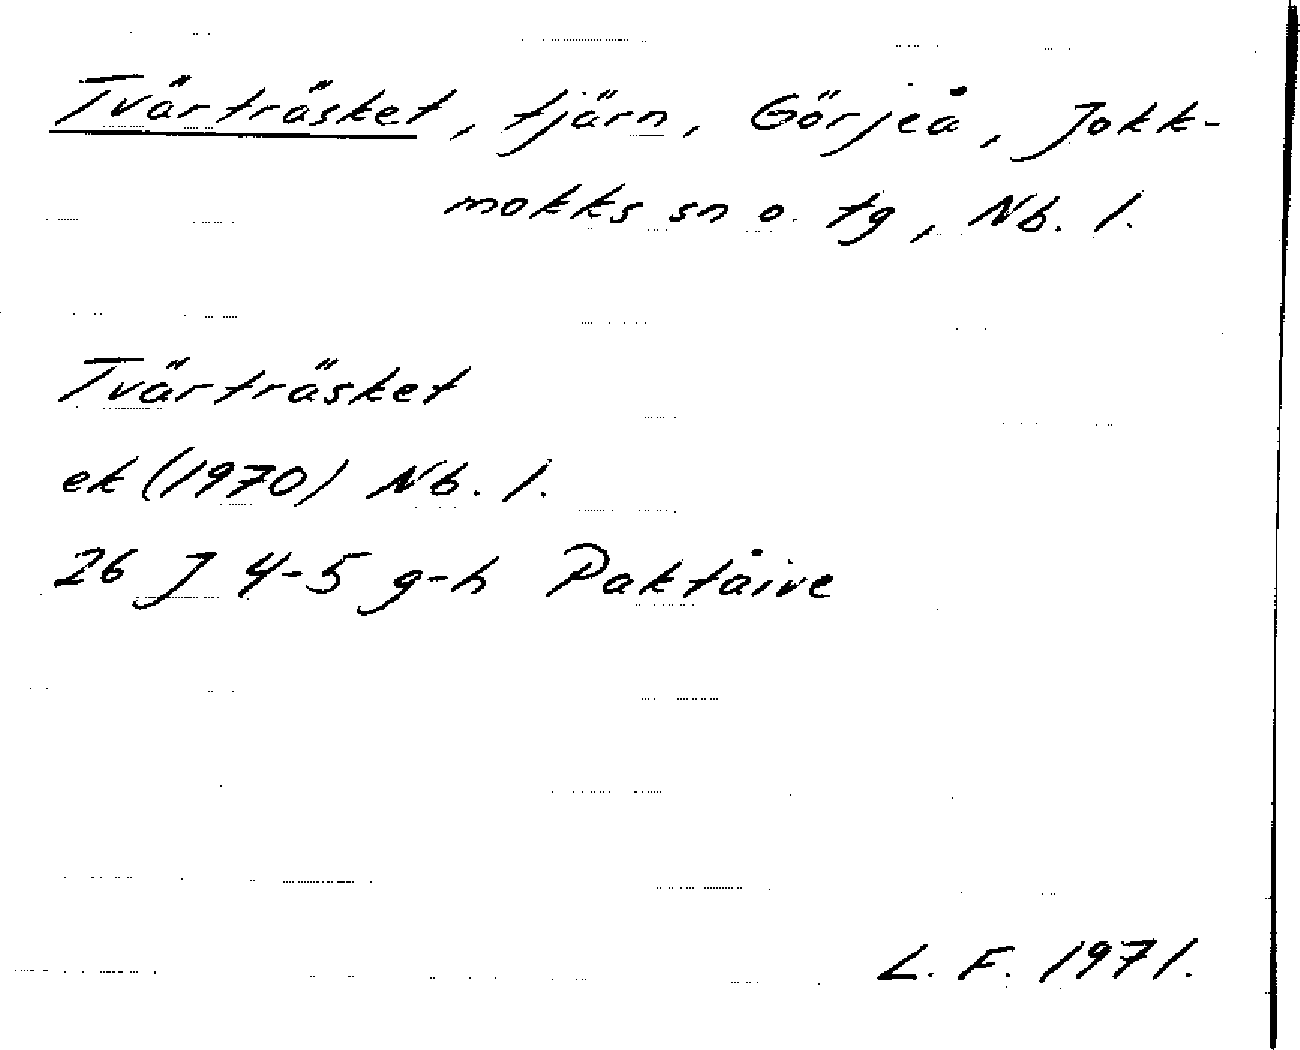 Tvärträsket, tjärn, Görjeå, Jokk-
mokks sn o. tg, Nb. l.
Tvärträsket
ek (1970) Nb. l.
26 J 4-5 g-h Paktåive
L. F. 1971.